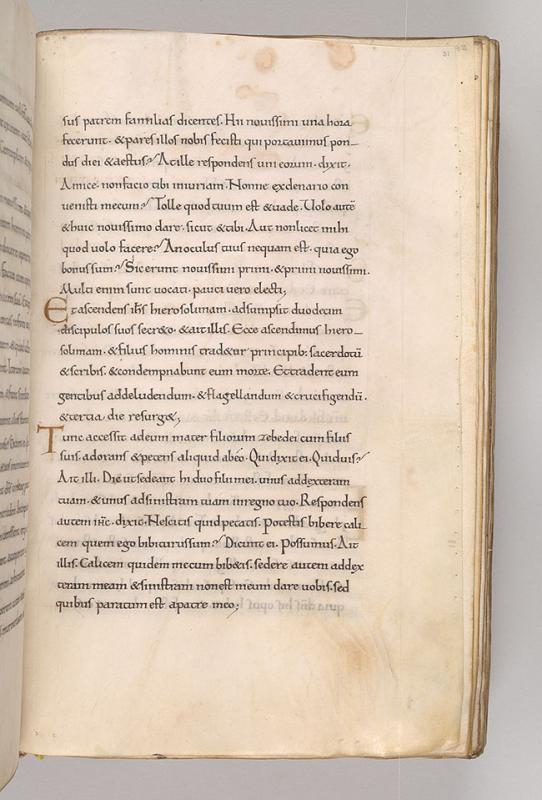 sus patrem familias dicentes. Hii nouissimi una hora
fecerunt. & pares illos nobis fecisti qui portauimus pon-
dus diei & aestus? At ille respondens uni eorum. dixit.
Amice. non facio tibi iniuriam. Nonne ex denario con
uenisti mecum? Tolle quod tuum est & uade. Uolo autē
& huic nouissimo dare. sicut & tibi. Aut non licet mihi
quod uolo facere? An oculus tuus nequam est. quia ego
bonus sum? Sic erunt nouissimi primi. & primi nouissimi.
Multi enim sunt uocati. pauci uero electi;
Et ascendens ihs hierosolimam. adsumpsit duodecim
discipulos suos secr&o. & ait illis. Ecce ascendimus hiero-
solimam. & filius hominis trad&ur principib; sacerdotū
& scribis. & condempnabunt eum morte. Et tradent eum
gentibus ad deludendum. & flagellandum & crucifigendū.
& tertia die resurg&;
Tunc accessit ad eum mater filiorum zebedei cum filiis
suis. adorans & petens aliquid ab eo. Qui dixit ei. Quid uis?
Ait illi. Dic ut sedeant hi duo filii mei. unus ad dexteram
tuam. & unus ad sinistram tuam in regno tuo. Respondens
autem ihc. dixit. Nescitis quid petatis. Potestis bibere cali-
cem quem ego bibiturus sum? Dicunt ei. Possumus. Ait
illis. Calicem quidem meum bib&is. sedere autem ad dex
teram meam & sinistram non est meum dare uobis. sed
quibus paratum est a patre meo;